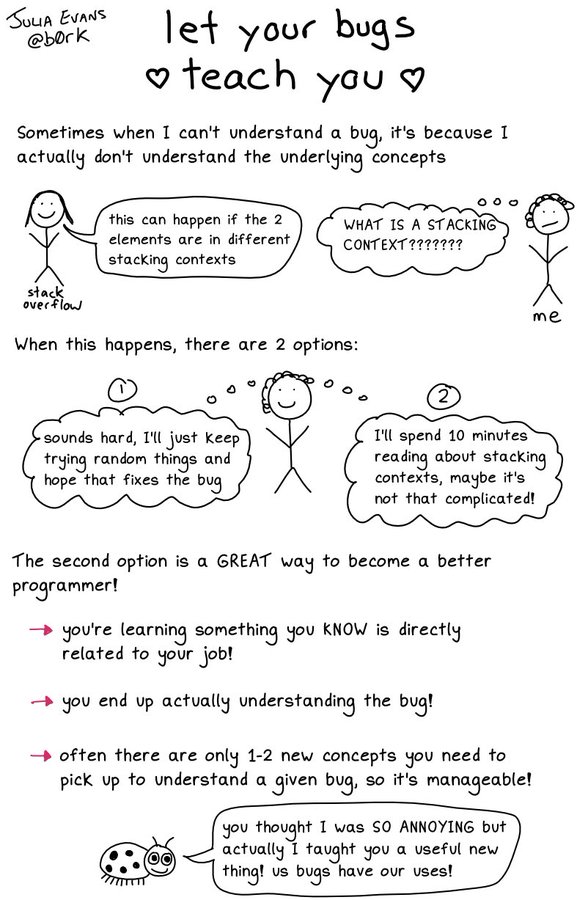 JULIA EVANS
@b0rk
let your bugs
♡ teach you ♡
Sometimes when I can't understand a bug, it's because I
actually don't understand the underlying concepts
this can happen if the 2
elements are in different
stacking contexts
stack
overflow
WHAT IS A STACKING
CONTEXT???????
me
When this happens, there are 2 options:
1
sounds hard, I'll just keep
trying random things and
hope that fixes the bug
2
I'll spend 10 minutes
reading about stacking
contexts, maybe it's
not that complicated!
The second option is a GREAT way to become a better
programmer!
→ you're learning something you KNOW is directly
related to your job!
→ you end up actually understanding the bug!
→ often there are only 1-2 new concepts you need to
pick up to understand a given bug, so it's manageable!
you thought I was SO ANNOYING but
actually I taught you a useful new
thing! us bugs have our uses!